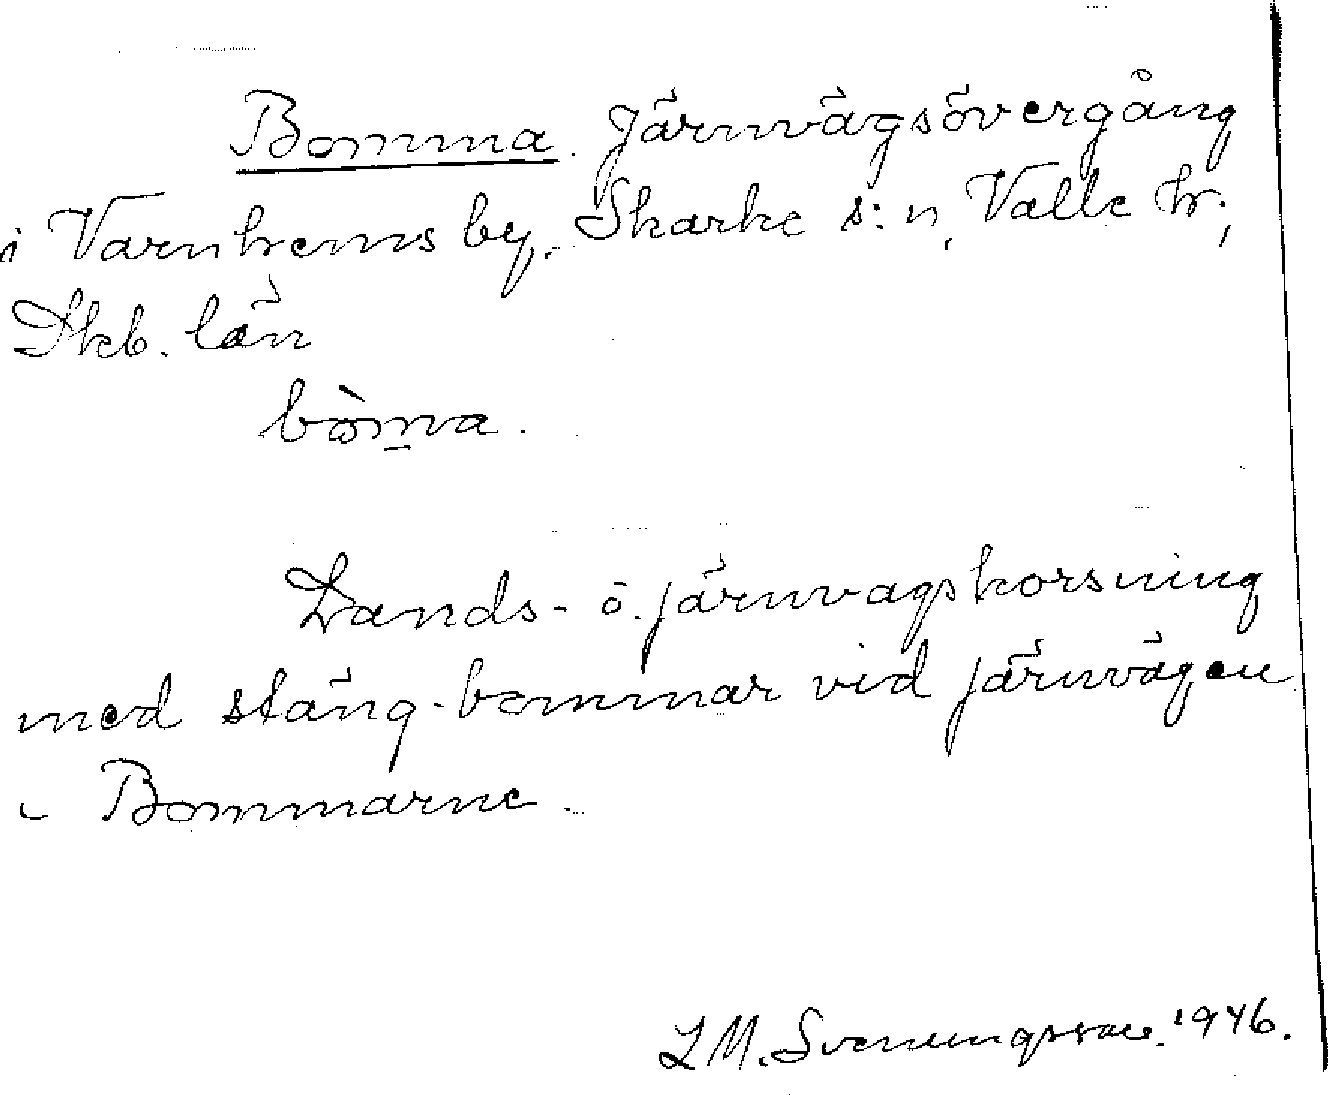 Bomma. Järnvägsövergång
i Varnhems by. Skarke s:n, Valle hr;
Skb. län
bòm̲a.
Lands- ö. järnvagskorsning
med stäng-bommar vid järnvägen
- Bommarne.
L M. Svenungsson. 1946.